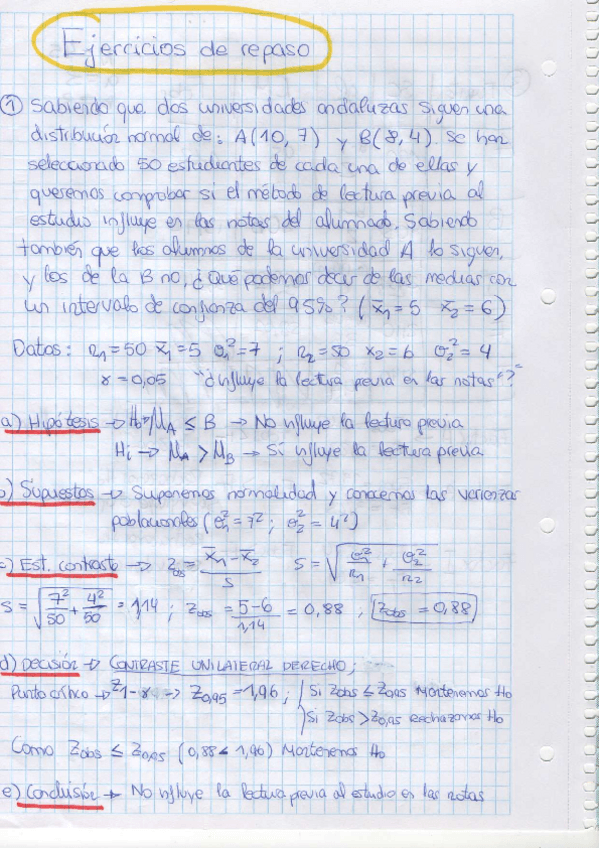 Ejercicios de repaso
① Sabiendo que dos universidades andaluzas siguen una
distribución normal de: A(10,7) y B(8,4). Se han
seleccionado 50 estudiantes de cada una de ellas y
queremos comprobar si el método de lectura previa al
estudio influye en las notas del alumnado. Sabiendo
también que los alumnos de la universidad A lo siguen,
y los de la B no, ¿Qué podemos decir de las medias con
un intervalo de confianza del 95%? (x̄₁=5 x̄₂=6)
Datos: n₁=50 x̄₁=5 σ₁²=7 ; n₂=50 x₂=6 σ₂²=4
α=0,05 "¿influye la lectura previa en las notas"?"
a) Hipótesis → H₀→ μA ≤ B → No influye la lectura previa
Hi → μA > μB → Sí influye la lectura previa
b) Supuestos → Suponemos normalidad y conocemos las varianzas
poblacionales (σ₁²=7²; σ₂²=4²)
c) Est. contraste → Zobs = x̄₁-x̄₂/S S = √σ₁²/n₁ + σ₂²/n₂
S = √7²/50 + 4²/50 = 1,14 ; Zobs = 5-6/1,14 = 0,88 , Zobs = 0,88
d) Decisión → CONTRASTE UNILATERAL DERECHO;
Punto crítico → Z1-α → Z0,95 = 1,96 ; Si Zobs ≤ Z0,95 Mantenemos H₀
Si Zobs > Z0,95 Rechazamos H₀
Como Zobs ≤ Z0,95 (0,88 < 1,96) Mantenemos H₀
e) Conclusión → No influye la lectura previa al estudio en las notas